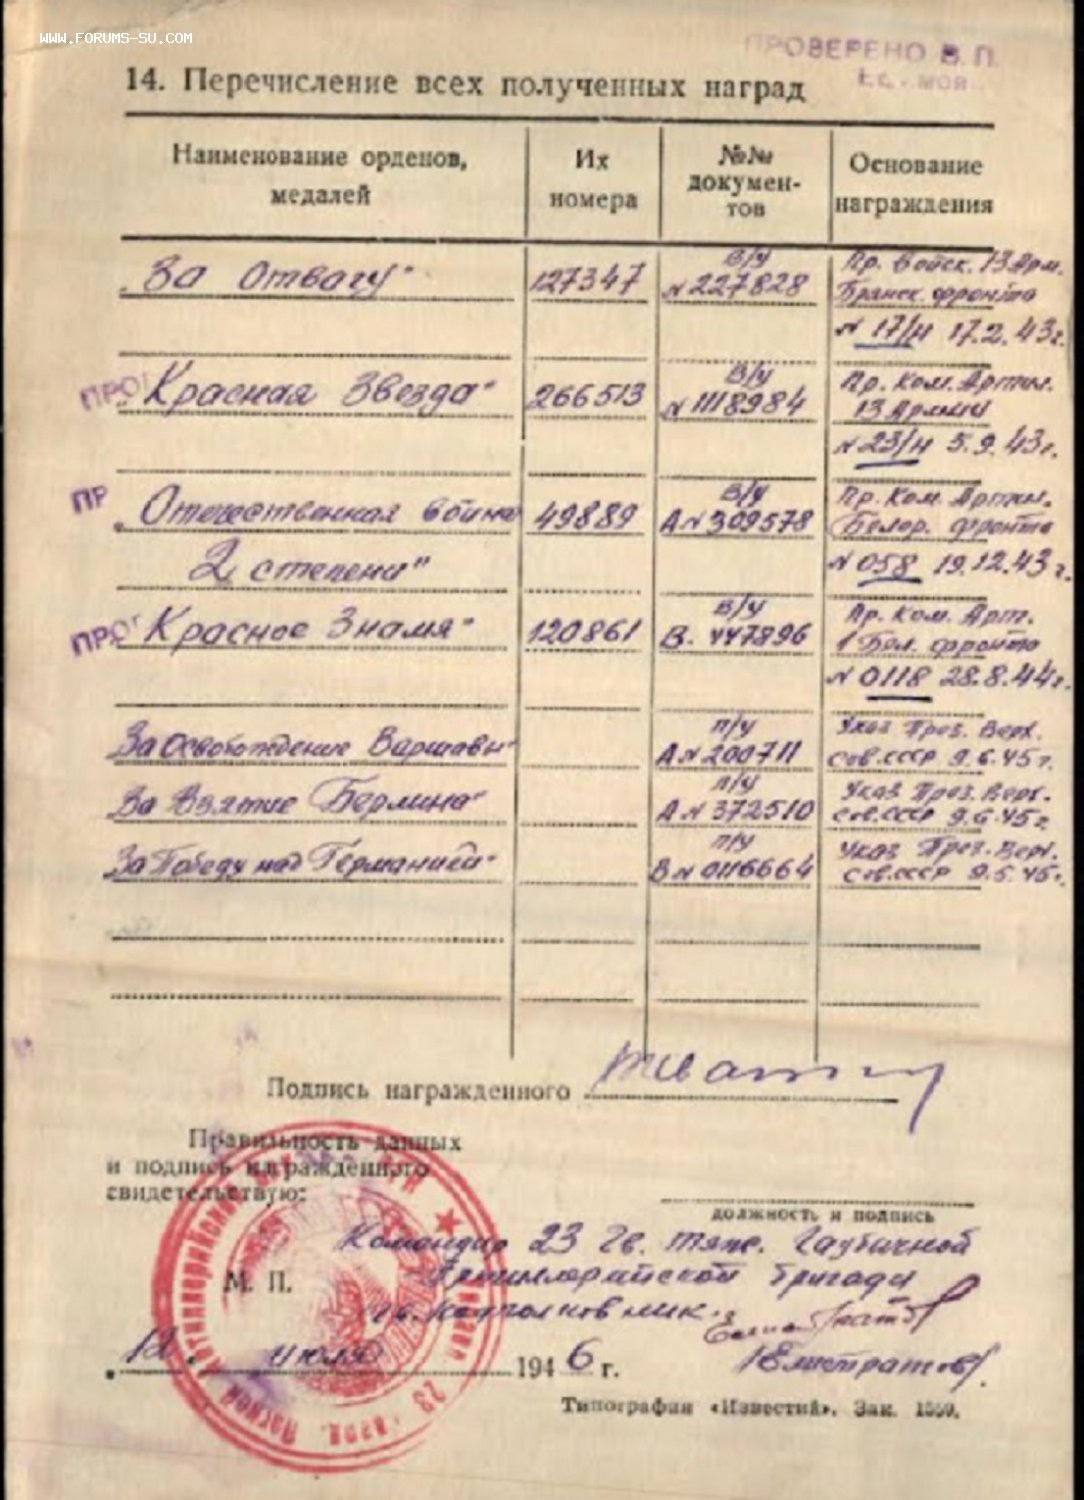 WWW.FORUMS-SU.COM
ПРОВЕРЕНО В. П.
14. Перечисление всех полученных наград
Наименование орденов, медалей
Их номера
№№ документов
Основание награждения
в/у
Пр. Войск. 13 Арм.
„За Отвагу" 127347 N 227828 Брянск. фронта
N 17/н 17.2.43г.
в/у
Пр. Ком. Артил.
ПРО
„Красная Звезда" 266513 N 1118984 13 Армии
N 23/н 5.9.43г.
в/у
Пр. Ком. Артил.
ПР
„Отечественная война 49889 А N 309578 Белор. фронта
2 степени" N 058 19.12.43г.
в/у
Пр. Ком. Арт.
ПРО
„Красное Знамя" 120861 В. 447896 1 Бел. фронта
N 0118 28.8.44г.
п/у
Указ През. Верх.
„За Освобождение Варшавы" А N 200711 Сов. СССР 9.6.45г.
п/у
Указ През. Верх.
„За Взятие Берлина" А N 372510 Сов. СССР 9.6.45г.
п/у
Указ През. Верх.
„За Победу над Германией" В N 0116664 Сов. СССР 9.5.45г.
Подпись награжденного
Правильность данных
и подпись награжденного
свидетельствую:
должность и подпись
Командир 23 Гв. тяж. Гаубичной
М. П.
Артиллерийской бригады
Гв. подполковник.
/Елистратов/.
„12„ июля 1946 г.
Типография «Известий». Зак. 1559.